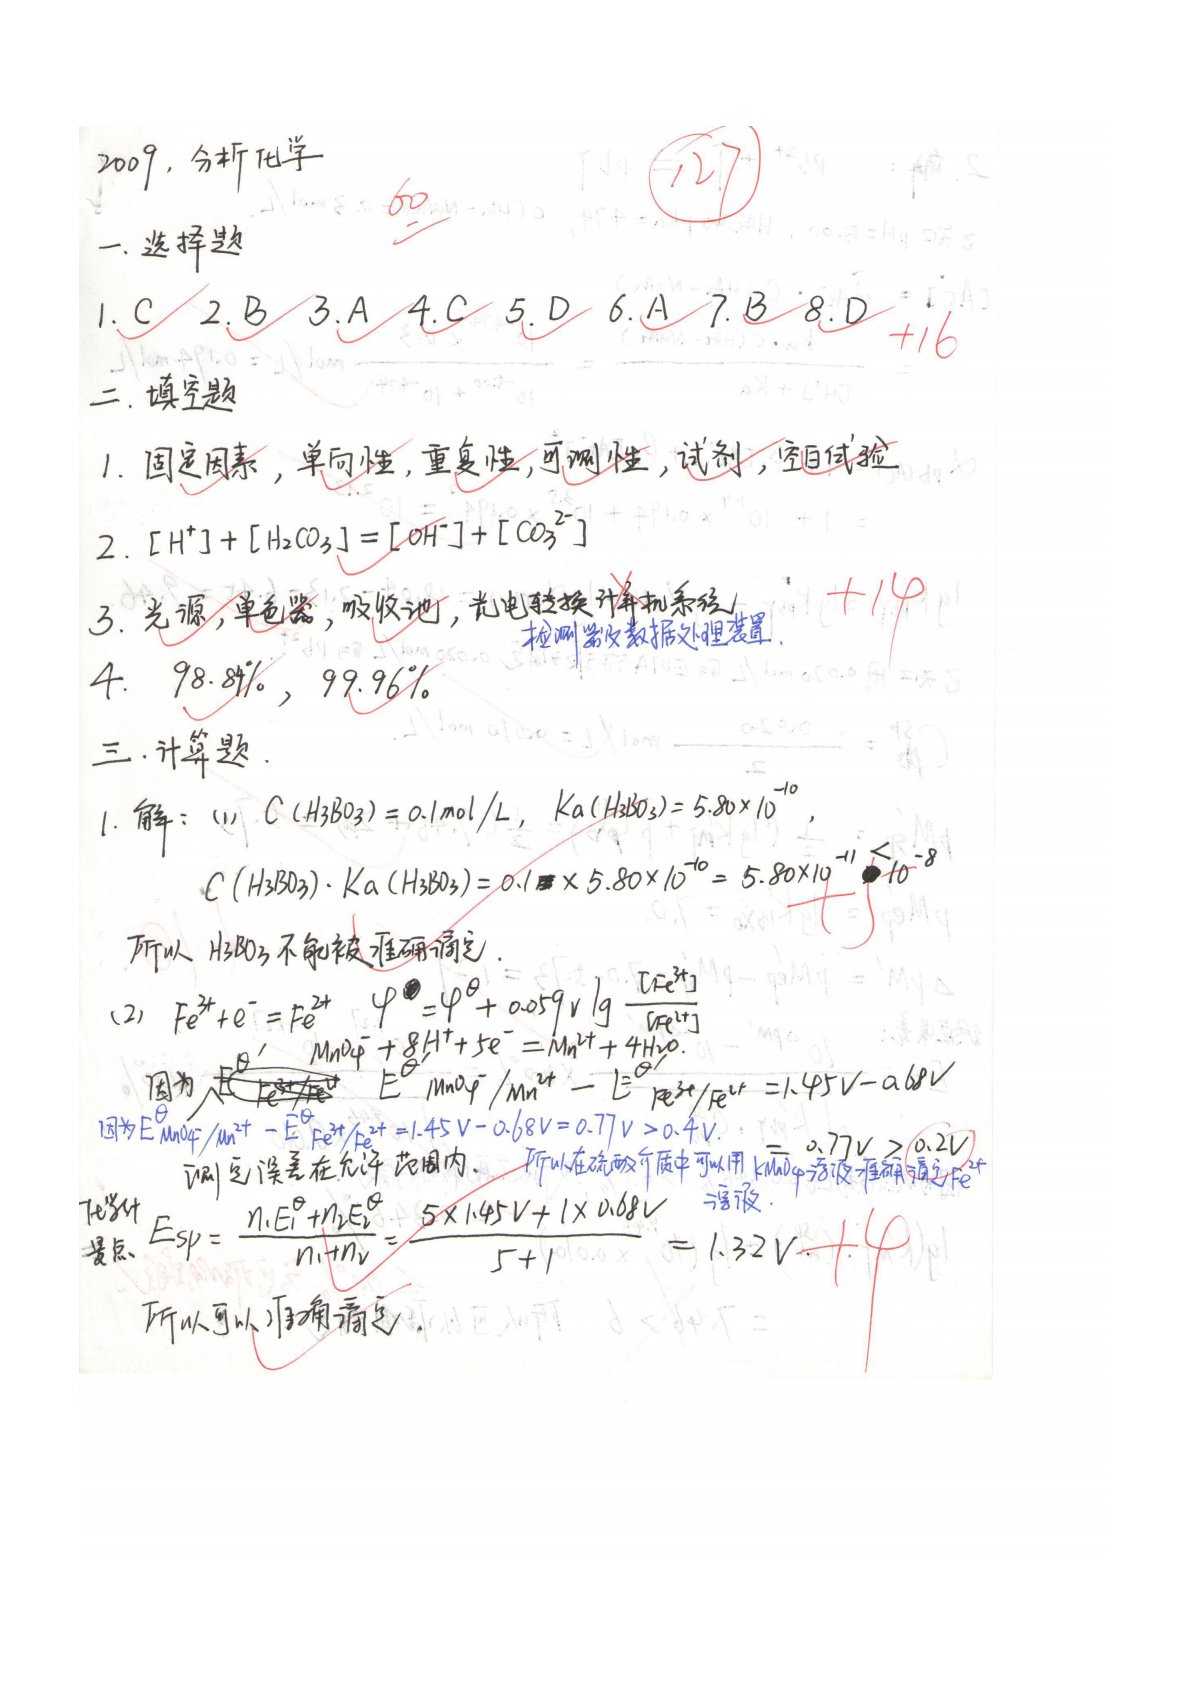 2009，分析化学
127
60
一．选择题
1. C 2. B 3. A 4. C 5. D 6. A 7. B 8. D
+16
二．填空题
1. 固定因素，单向性，重复性，可测性，试剂，空白试验
2. [H⁺]+[H₂CO₃]=[OH⁻]+[CO₃²⁻]
+14
3. 光源，单色器，吸收池，光电转换计算机系统
检测器及数据处理装置．
4. 98.84%，99.96%
三．计算题．
1. 解：(1) C(H₃BO₃)=0.1mol/L，Ka(H₃BO₃)=5.80×10⁻¹⁰，
C(H₃BO₃)·Ka(H₃BO₃)=0.1×5.80×10⁻¹⁰=5.80×10⁻¹¹<10⁻⁸
+5
所以 H₃BO₃不能被准确滴定．
(2) Fe³⁺+e⁻=Fe²⁺ φ=φ^θ+0.059v lg [Fe³⁺]/[Fe²⁺]
MnO₄⁻+8H⁺+5e⁻=Mn²⁺+4H₂O.
因为 E^θ′ MnO₄⁻/Mn²⁺－E^θ′ Fe³⁺/Fe²⁺=1.45V－0.68V
因为E^θ MnO₄⁻/Mn²⁺－E^θ Fe³⁺/Fe²⁺=1.45V－0.68V=0.77V>0.4V.
=0.77V>0.2V
测定误差在允许范围内．
所以在硫酸介质中可以用KMnO₄溶液准确滴定Fe²⁺
溶液．
化学计量点. Esp=(n₁E₁^θ+n₂E₂^θ)/(n₁+n₂)=(5×1.45V+1×0.68V)/(5+1)=1.32V.
+4
所以可以准确滴定．